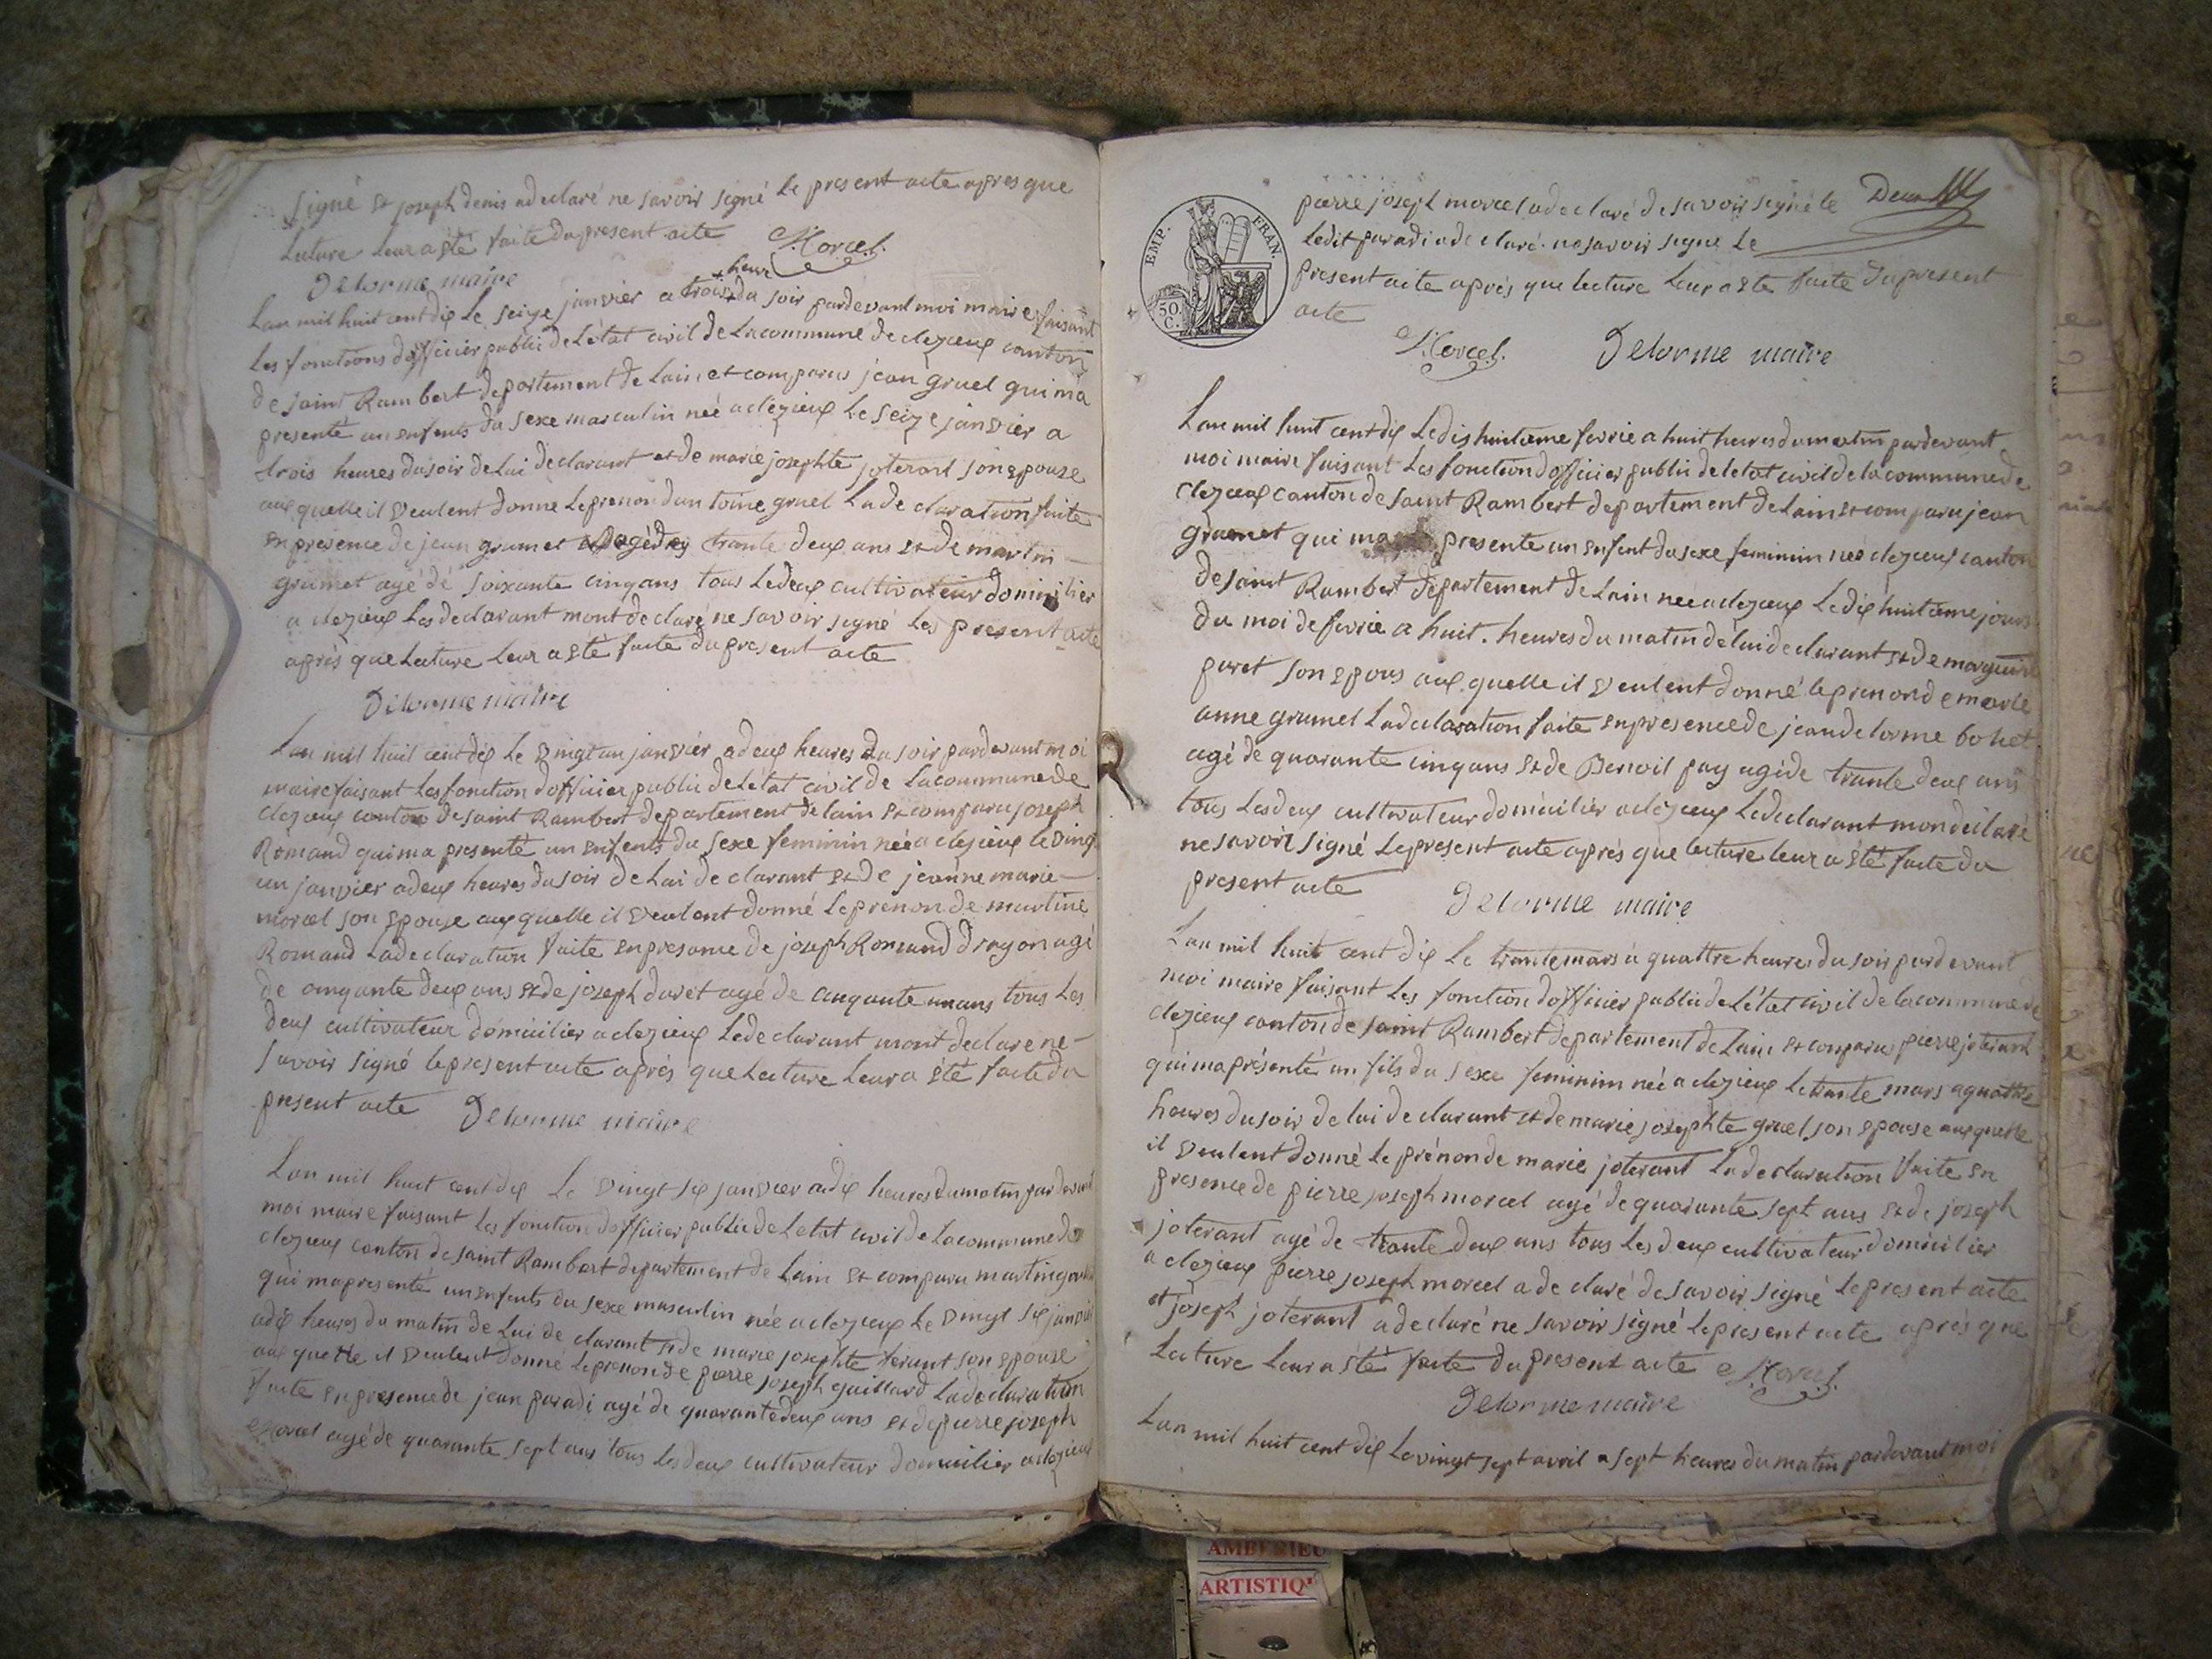 signé et joseph denis adeclaré ne savoir signé le present acte apres que
lecture leur a été faite du present acte Morcel
Delorme maire
heur
Lan mil huit cent dix le seize janvier a trois du soir pardevant moi maire faisant
les fonctions dofficier public de létat civil de la commune de clezieux canton
de saint Rambert departement de lain et comparus jean gruel qui ma
presenté un enfents du sexe masculin neé a clezieux le seize janvier a
trois heures du soir de lui declarant et de marie josephte joterant son epouse
aux quelle il veulent donne le prenon dantoine gruel la declaration faite
en presence de jean grumet agé de trante deux ans et de martin
grumet agé de soixante cinq ans tous le deux cultivateur domicilier
a clezieux les declarant mont declaré ne savoir signé les present acte
après que lecture leur a été faite du present acte
Delorme maire
Lan mil huit cent dix le vingt un janvier a deux heures du soir pardevant moi
maire faisant les fonction dofficier public de létat civil de la commune de
clezieux canton de saint Rambert departement de lain et comparu joseph
Romand qui ma presenté un enfents du sexe feminin neé a clezieux le vingt
un janvier a deux heures du soir de lui declarant et de jeanne marie
morcel son epouse aux quelle il veulent donné le prenon de martine
Romand la declaration faite en presance de joseph Romand dragon agé
de cinquante deux ans et de joseph duret agé de cinquante un ans tous les
deux cultivateur domicilier a clezieux le declarant mont declare ne
savoir signé le present acte après que lecture leur a été faite du
present acte Delorme maire
Lan mil huit cent dix le vingt six janvier a dix heures du matin pardevant
moi maire faisant les fonction dofficier public de letat civil de la commune de
clezieux canton de saint Rambert departement de lain et comparu martin
qui ma presenté un enfents du sexe masculin née a clezieux le vingt six janvier
a dix heures du matin de lui declarant et de marie josephte ferant son epouse
aux quelle il veulent donné le prenon de pierre joseph gaillard la declaration
faite en presence de jean paradi agé de quarante deux ans et de pierre joseph
Morcel agé de quarante sept ans tous les deux cultivateur domicilier a clezieux
EMP. FRAN.
50 C.
pierre joseph morcel a declaré de savoir signé le
ledit paradi a declaré ne savoir signe le
present acte après que lecture leur a été faite du present
acte
Morcel Delorme maire
Lan mil huit cent dix le dix huitieme fevrie a huit heures du matin pardevant
moi maire faisant les fonction dofficier public de letat civil de la commune de
clezieux canton de saint Rambert departement de lain et comparu jean
grumet qui ma presente un enfent du sexe feminin neé clezieux canton
de saint Rambert departement de lain neé a clezieux le dix huitieme jours
du moi de fevrie a huit heures du matin de lui declarant et de marguerite
puret son epous aux quelle il veulent donné le prenon de marie
anne grumel la declaration faite en presence de jean delorme bohet
agé de quarante cinq ans et de Benoit pay agé de trante deux ans
tous les deux cultivateur domicilier a clezieux le declarant mon declaré
ne savoir signé le present acte après que lecture leur a été faite du
present acte Delorme maire
Lan mil huit cent dix le trante mars à quattre heures du soir pardevant
moi maire faisant les fonction dofficier public de létat civil de la commune de
clezieux canton de saint Rambert departement de lain et comparu pierre joterant
qui ma présenté un fils du sexe feminim née a clezieux le trante mars a quattre
heures du soir de lui declarant et de marie josephte gruel son epouse aux quelle
il veulent donné le prénon de marie joterant la declaration faite en
presence de pierre joseph morcel agé de quarante sept ans et de joseph
joterant agé de trante deux ans tous les deux cultivateur domicilier
a clezieux pierre joseph morcel a declaré de savoir signé le present acte
et joseph joterant a declaré ne savoir signé le present acte après que
lecture leur a été faite du present acte Morcel
Delorme maire
Lan mil huit cent dix le vingt sept avril a sept heures du matin pardevant moi
ARTISTIQ